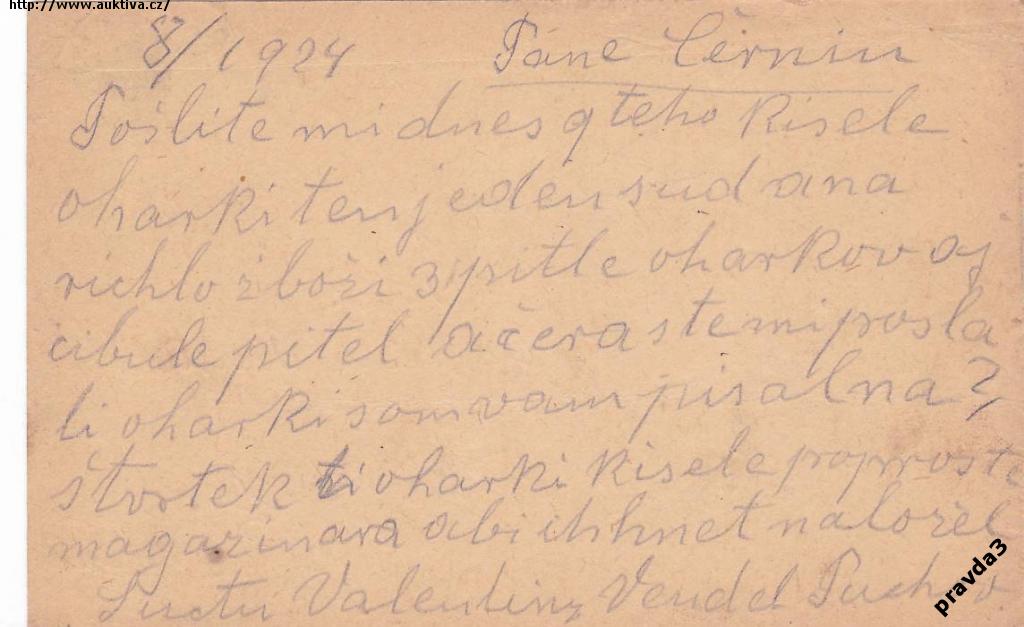 http://www.auktiva.cz/
8/1924 Páne Černín
Pošlite mi dnes q teho kisele
oharki ten jeden sud a na
richlo zboži 3 pitle oharkov aj
cibule pitel a čera ste mi posla
li oharki som vam pisal na?
štvrtek ti oharki kisele poproste
magazinara abi ich hnet naložel
Valentin Vendel Puchov
pravda3